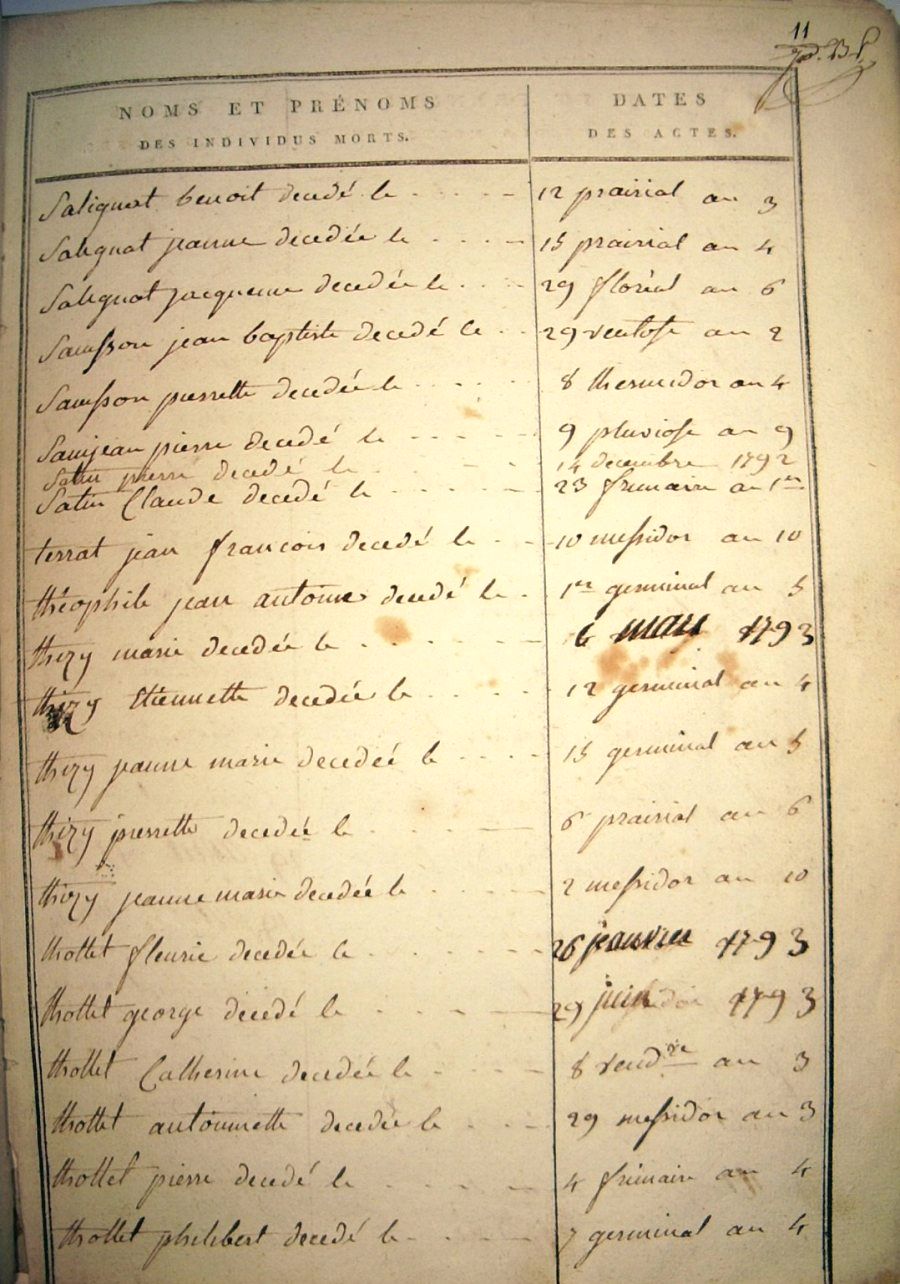 11
NOMS ET PRÉNOMS DATES
DES INDIVIDUS MORTS. DES ACTES.
Salignat benoit decedé le 12 prairial an 3
Salignat jeanne decedée le 15 prairial an 4
Salignat jacqueme decedée le 29 floréal an 6
Samsson jean baptiste decedé le 29 ventose an 2
Samsson pierrette decedée le 8 thermidor an 4
Sainjean pierre decedé le 9 pluviose an 9
Satin pierre decedé le 14 decembre 1792
Satin Claude decedé le 23 frimaire an 1er
terrat jean francois decedé le 10 messidor an 10
théophile jean antoine decedé le 1er germinal an 5
thizy marie decedée le 6 mars 1793
thizy Etiennette decedée le 12 germinal an 4
thizy jeanne marie decedée le 15 germinal an 5
thizy pierrette decedée le 6 prairial an 6
thizy jeanne marie decedée le 2 messidor an 10
thollet fleurie decedée le 26 janvier 1793
thollet george decedé le 29 juin 1793
thollet Catherine decedée le 8 vendre an 3
thollet antoinette decedée le 29 messidor an 3
thollet pierre decedé le 4 frimaire an 4
thollet philibert decedé le 7 germinal an 4